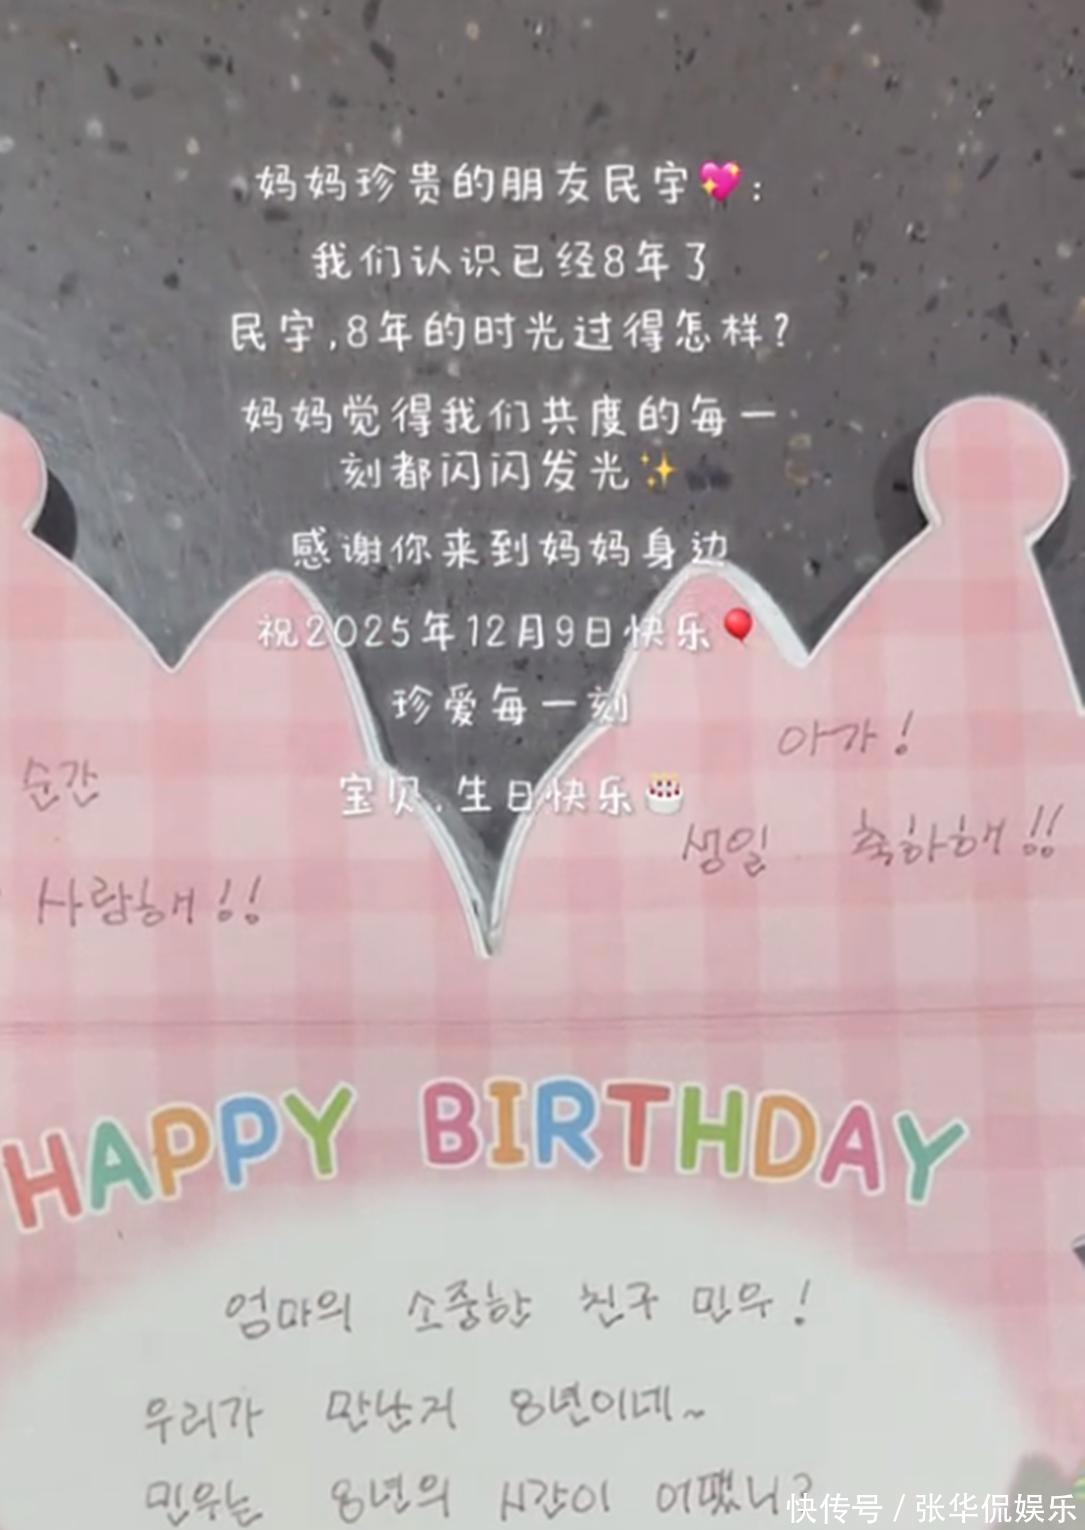 妈妈珍贵的朋友民宇💖：
我们认识已经8年了
民宇,8年的时光过得怎样?
妈妈觉得我们共度的每一
刻都闪闪发光✨
感谢你来到妈妈身边
祝2025年12月9日快乐🎈
珍爱每一刻
宝贝,生日快乐🎂
아가!
순간
생일 축하해!!
사랑해!!
HAPPY BIRTHDAY
엄마의 소중한 친구 민우!
우리가 만난지 8년이네~
민우는 8년의 시간이 어땠니?
快传号 / 张华侃娱乐